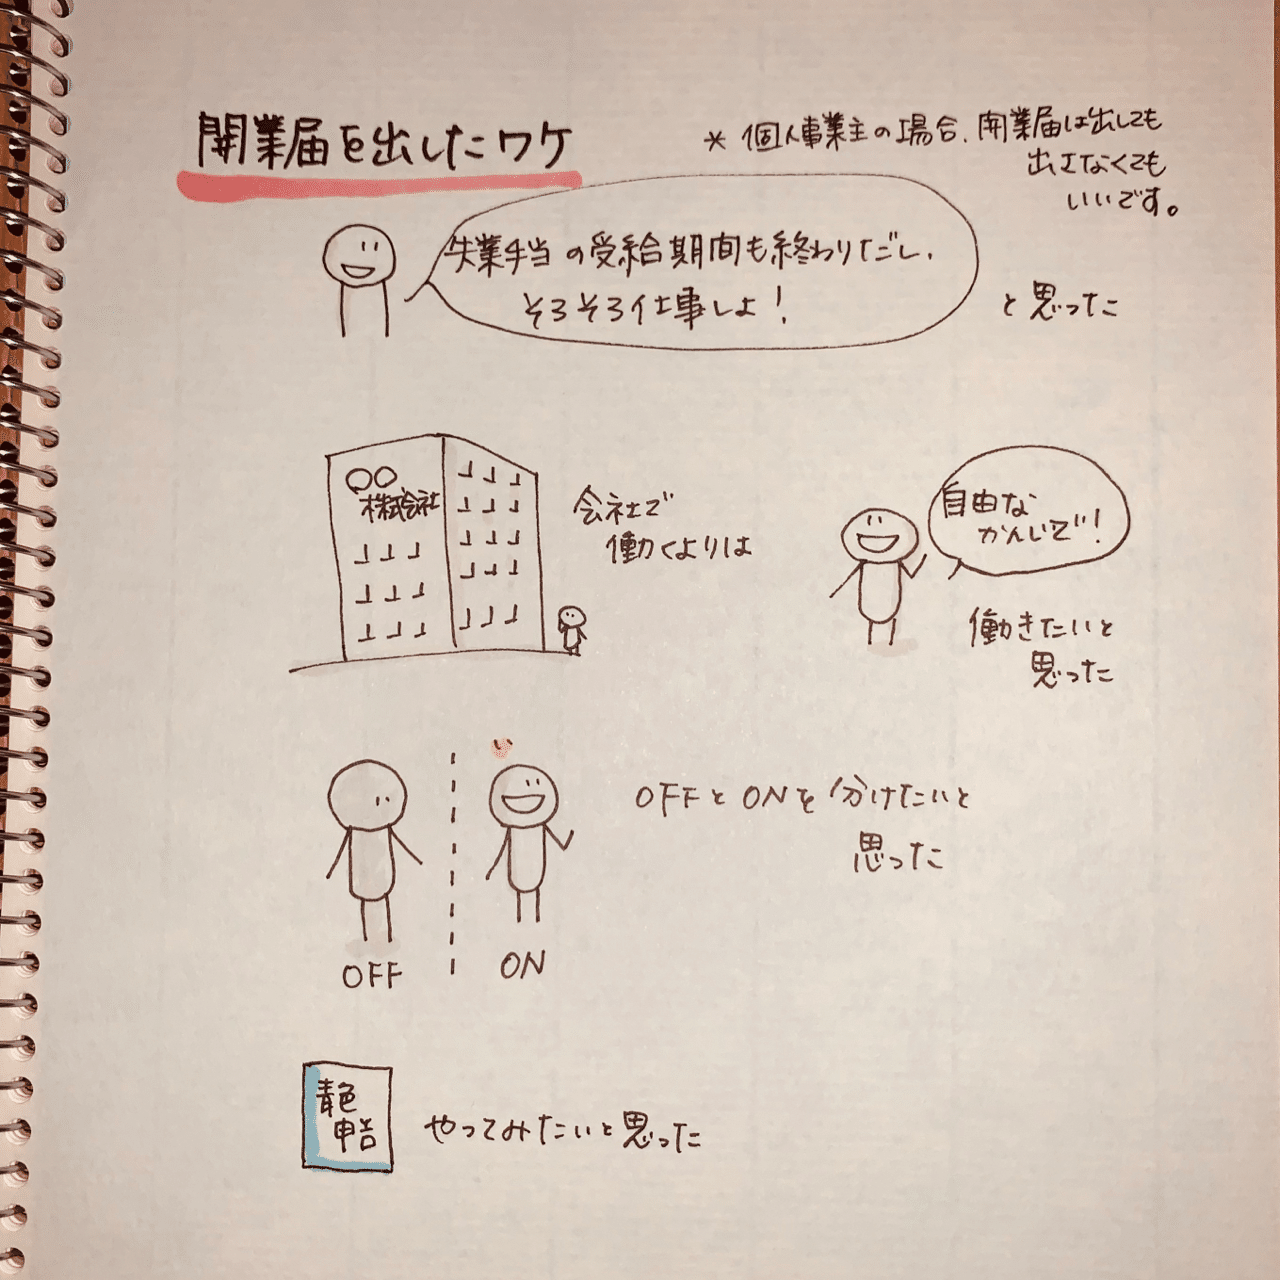 開業届を出したワケ
* 個人事業主の場合、開業届は出しても
出さなくても
いいです。
失業手当の受給期間も終わりだし、
そろそろ仕事しよ!
と思った
〇〇
株式会社
会社で
働くよりは
自由な
かんじで!
働きたいと
思った
OFFとONを分けたいと
思った
OFF
ON
青色
申告
やってみたいと思った